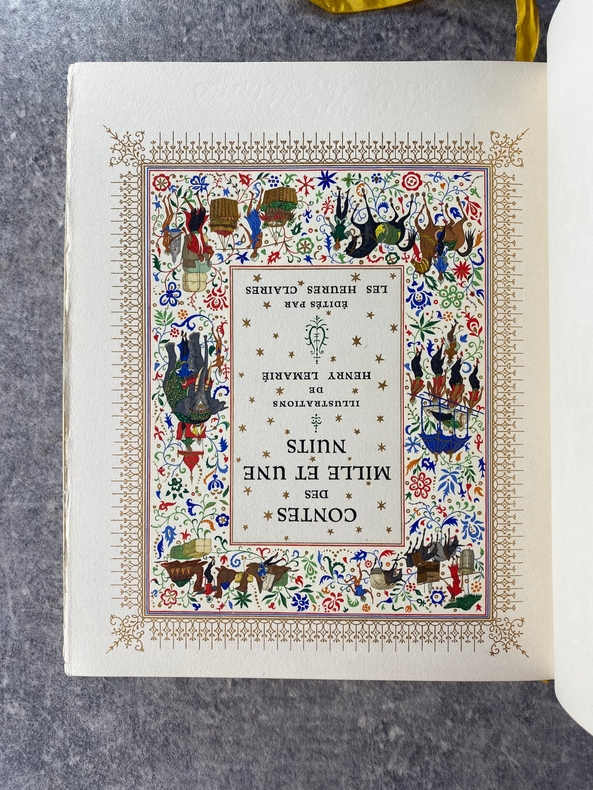 CONTES
DES
MILLE ET UNE
NUITS
ILLUSTRATIONS
DE
HENRY LEMARIÉ
ÉDITÉS PAR
LES HEURES CLAIRES